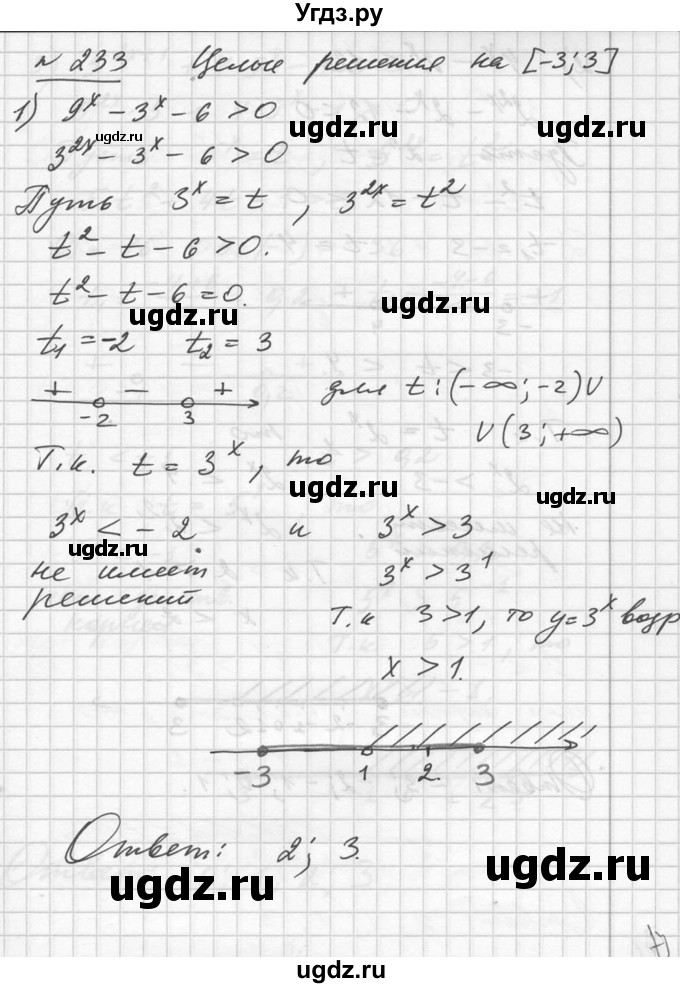 Угдз.ру
№ 233 Целые решения на [-3; 3]
1) 9ˣ - 3ˣ - 6 > 0
ugdz.ru
ugdz.ru
3²ˣ - 3ˣ - 6 > 0
ugdz.ru
Путь 3ˣ = t , 3²ˣ = t²
t² - t - 6 > 0.
t² - t - 6 = 0.
ugdz.ru
ugdz.ru
t₁ = -2 t₂ = 3
+ - +
-2 3
для t: (-∞; -2) U
U (3; +∞)
Т.к. t = 3ˣ, то
ugdz.ru
ugdz.ru
3ˣ < -2 и 3ˣ > 3
ugdz.ru
не имеет 3ˣ > 3¹
решений
Т.к 3 > 1, то y = 3ˣ возр
x > 1.
-3 1 2 3
Ответ: 2; 3.
ugdz.ru
ugdz.ru
ugdz.ru